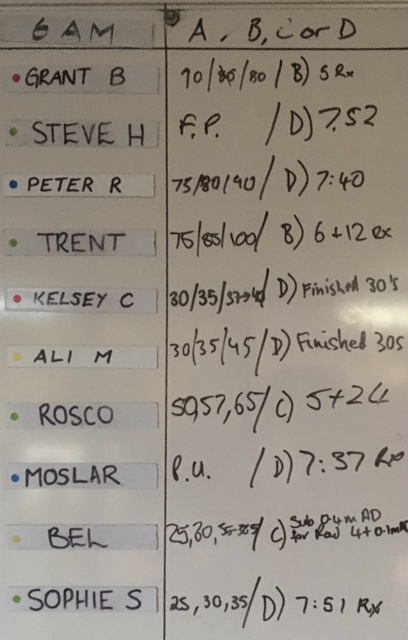 6 AM A, B, C or D
GRANT B 70/ /80 / B) 5 Rx
STEVE H F.P. / D) 7.52
PETER R 75/80/90/ D) 7:40
TRENT 75/85/100/ B) 6+12 Rx
KELSEY C 30/35/ D) Finished 30's
ALI M 30/35/45/ D) Finished 30s
ROSCO 50,57,65/ C) 5+24
MOSLAR P.U. / D) 7:37 Rx
BEL 25,30, / C) Sub 0.4m AD
for Row 4+0.1m AD
SOPHIE S 25, 30, 35/ D) 7:51 Rx